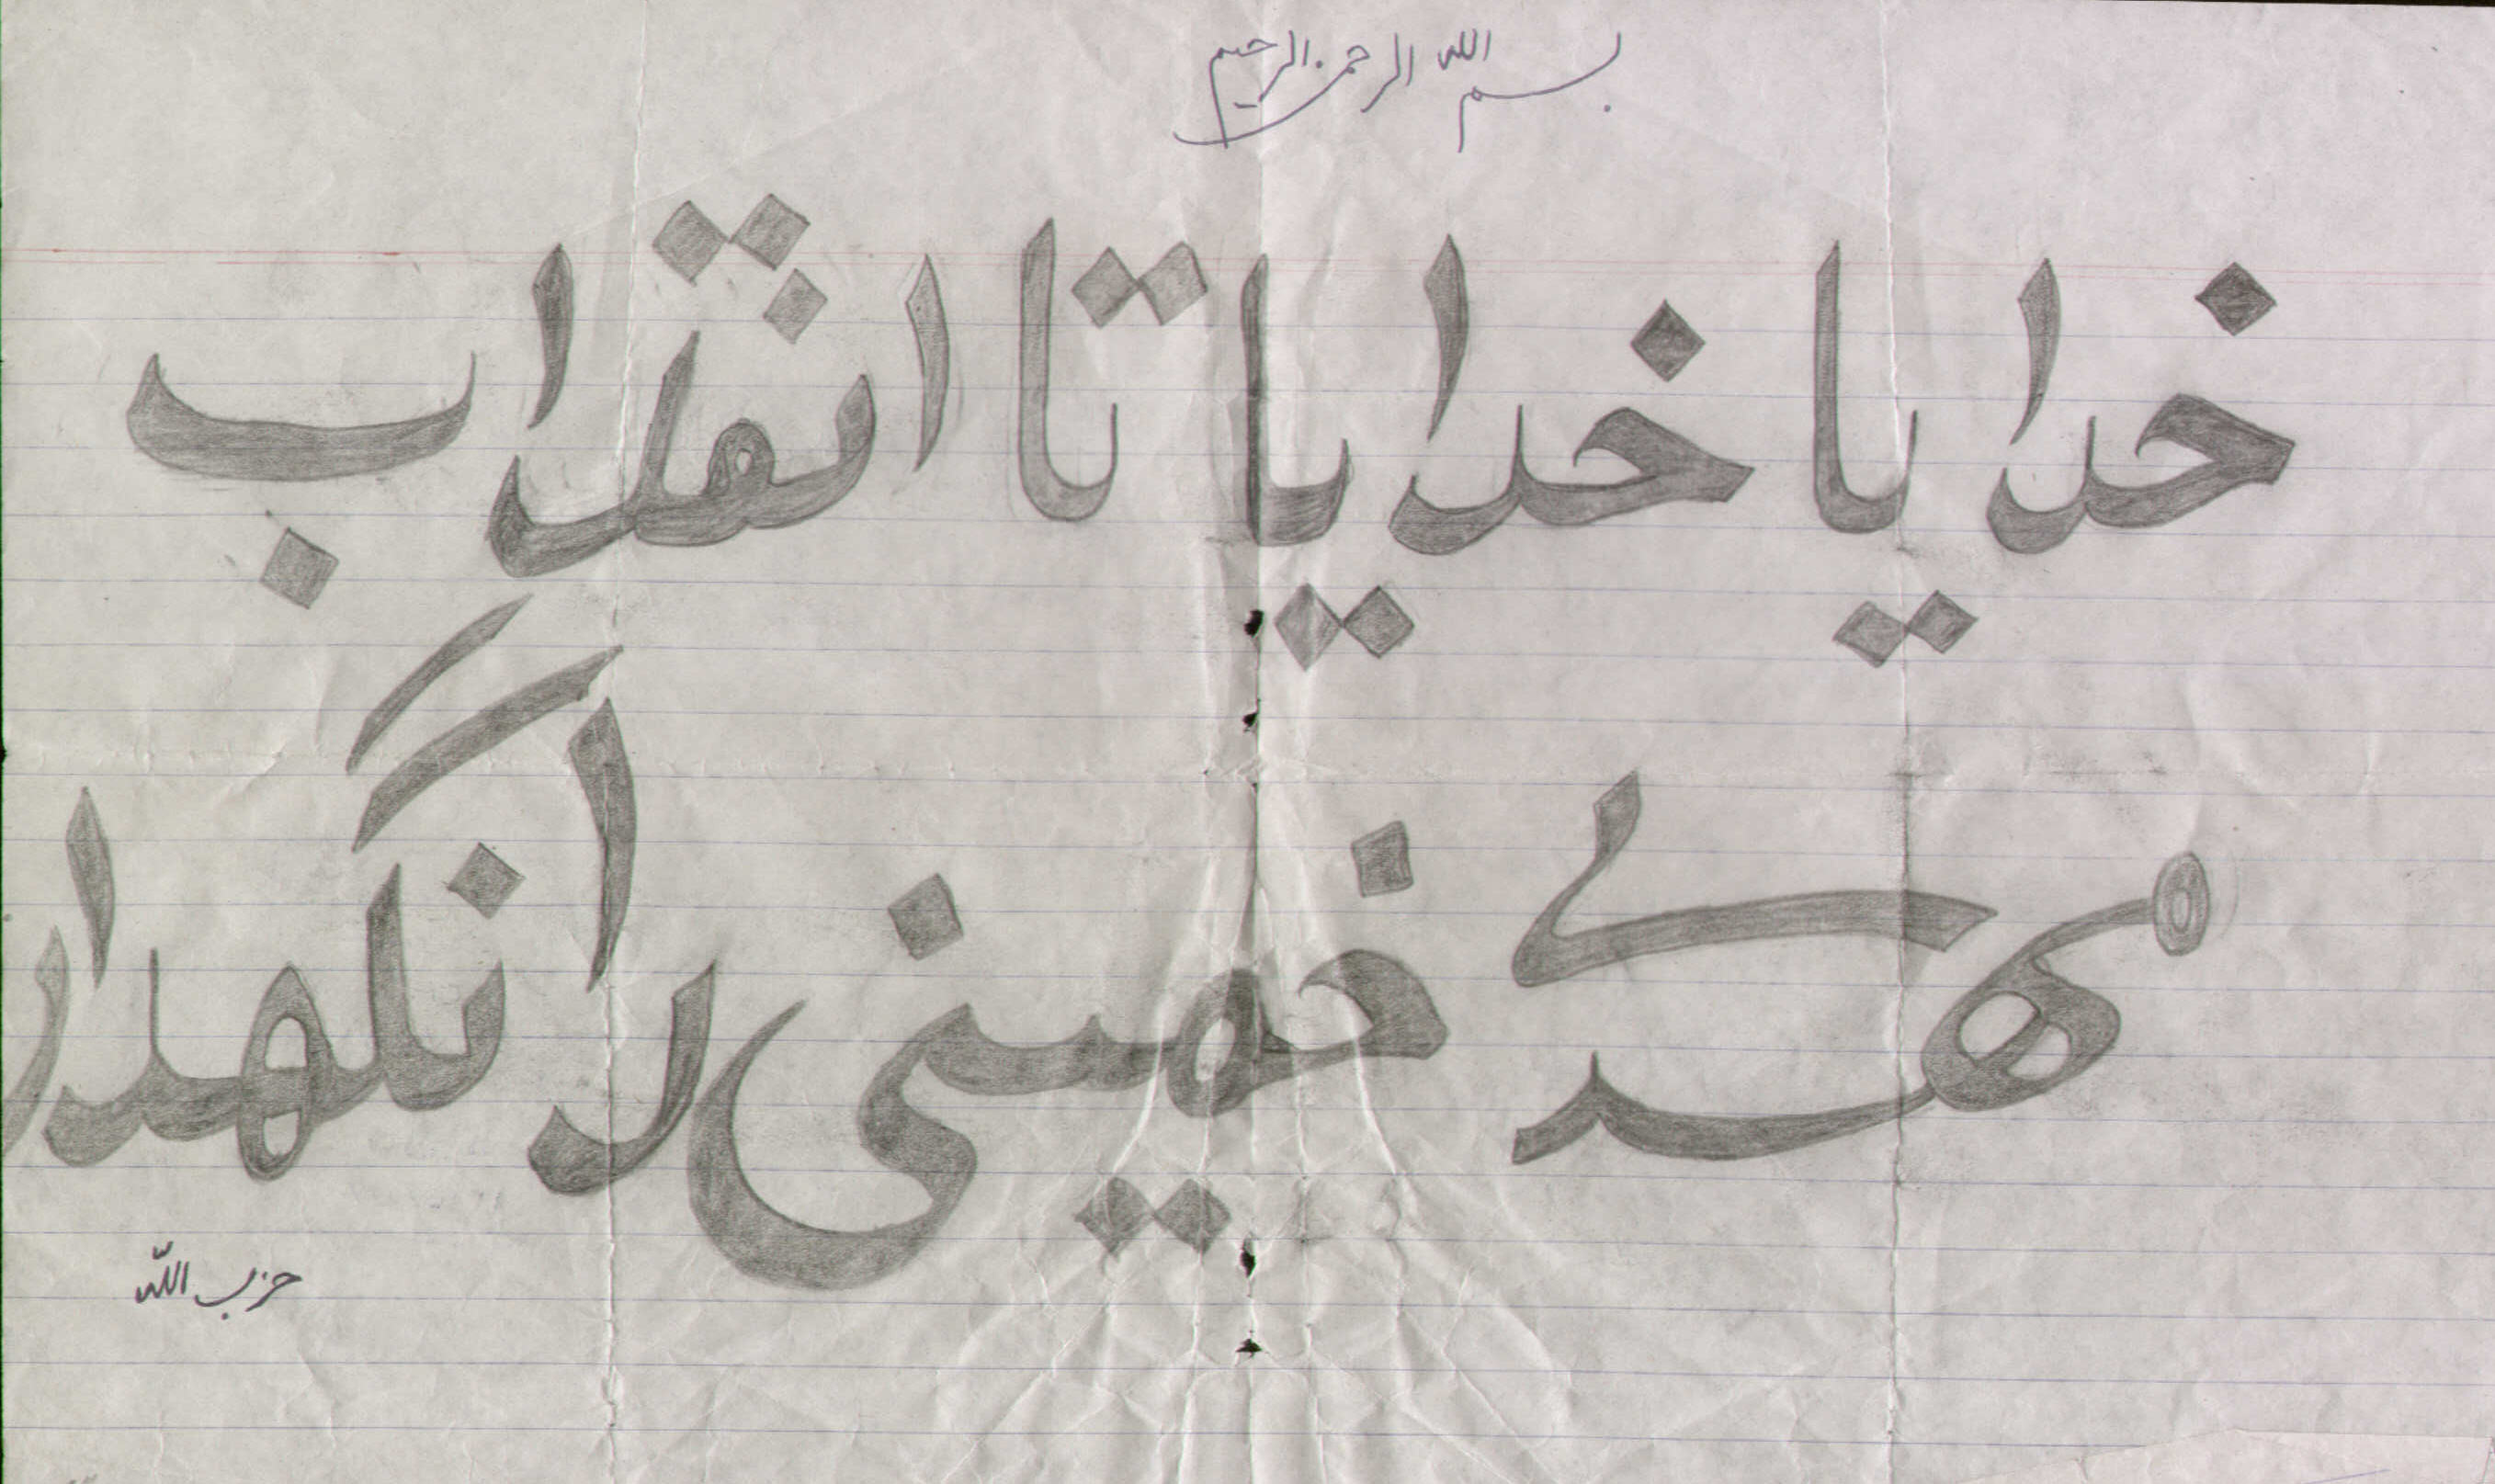 بسم الله الرحمن الرحیم
خدایا خدایا تا انقلاب
مهدی خمینی را نگهدار
حزب اللّه